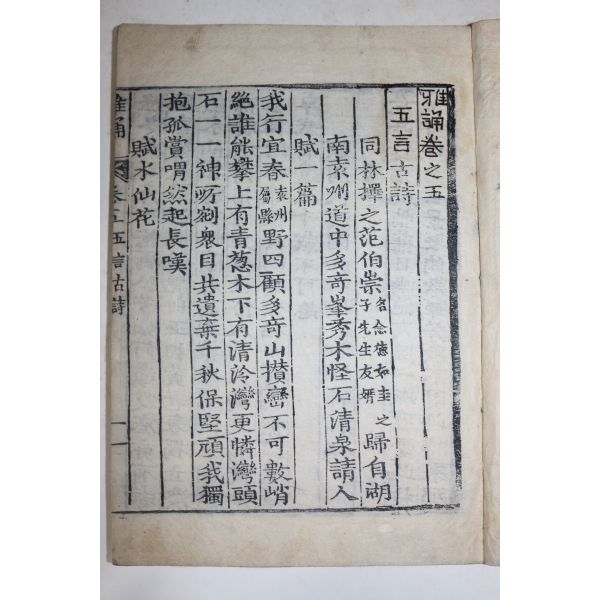 雅誦卷之五
五言古詩
同林擇之范伯崇名念德如圭之子先生友婿歸自湖
南袁州道中多竒峯秀木怪石清泉請人
賦一篇
我行宜春袁州屬縣野四顧多竒山攅巒不可數峭
絶誰能攀上有青葱木下有清泠灣更憐灣頭
石一一神所剜衆目共遺棄千秋保堅頑我獨
抱孤賞喟然起長嘆
賦水仙花
雅誦 卷五 五言古詩 一